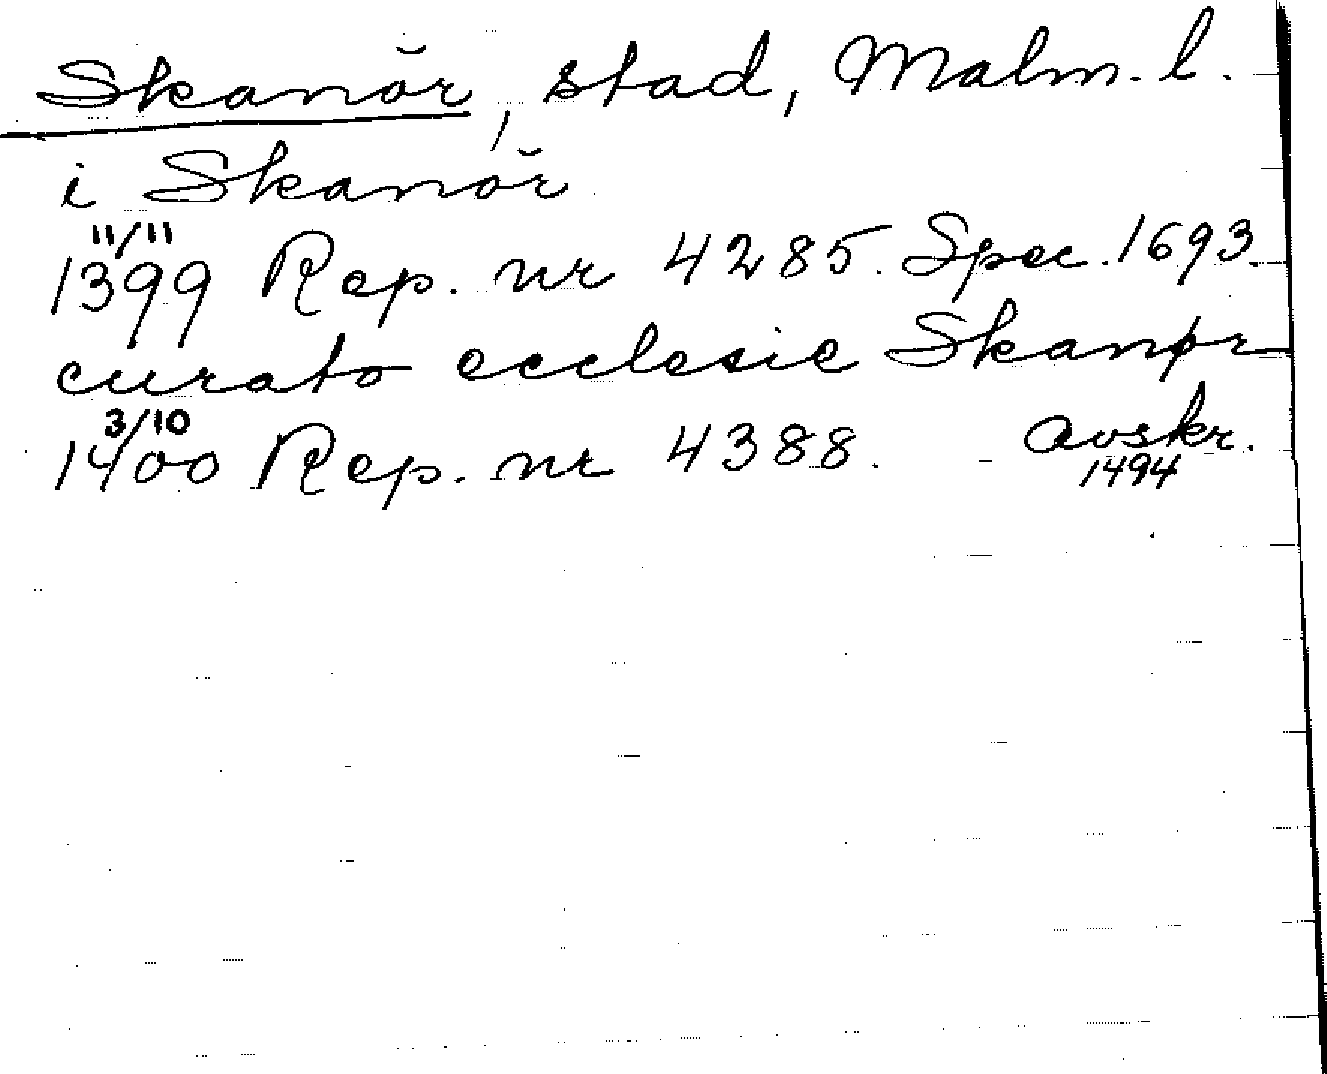 Skanör, stad, Malm. l.
i Skanör
11/11
1399 Rep. nr 4285. Spec. 1693.
curato ecclesie Skanør
3/10
1400 Rep. nr 4388. Avskr.
1494